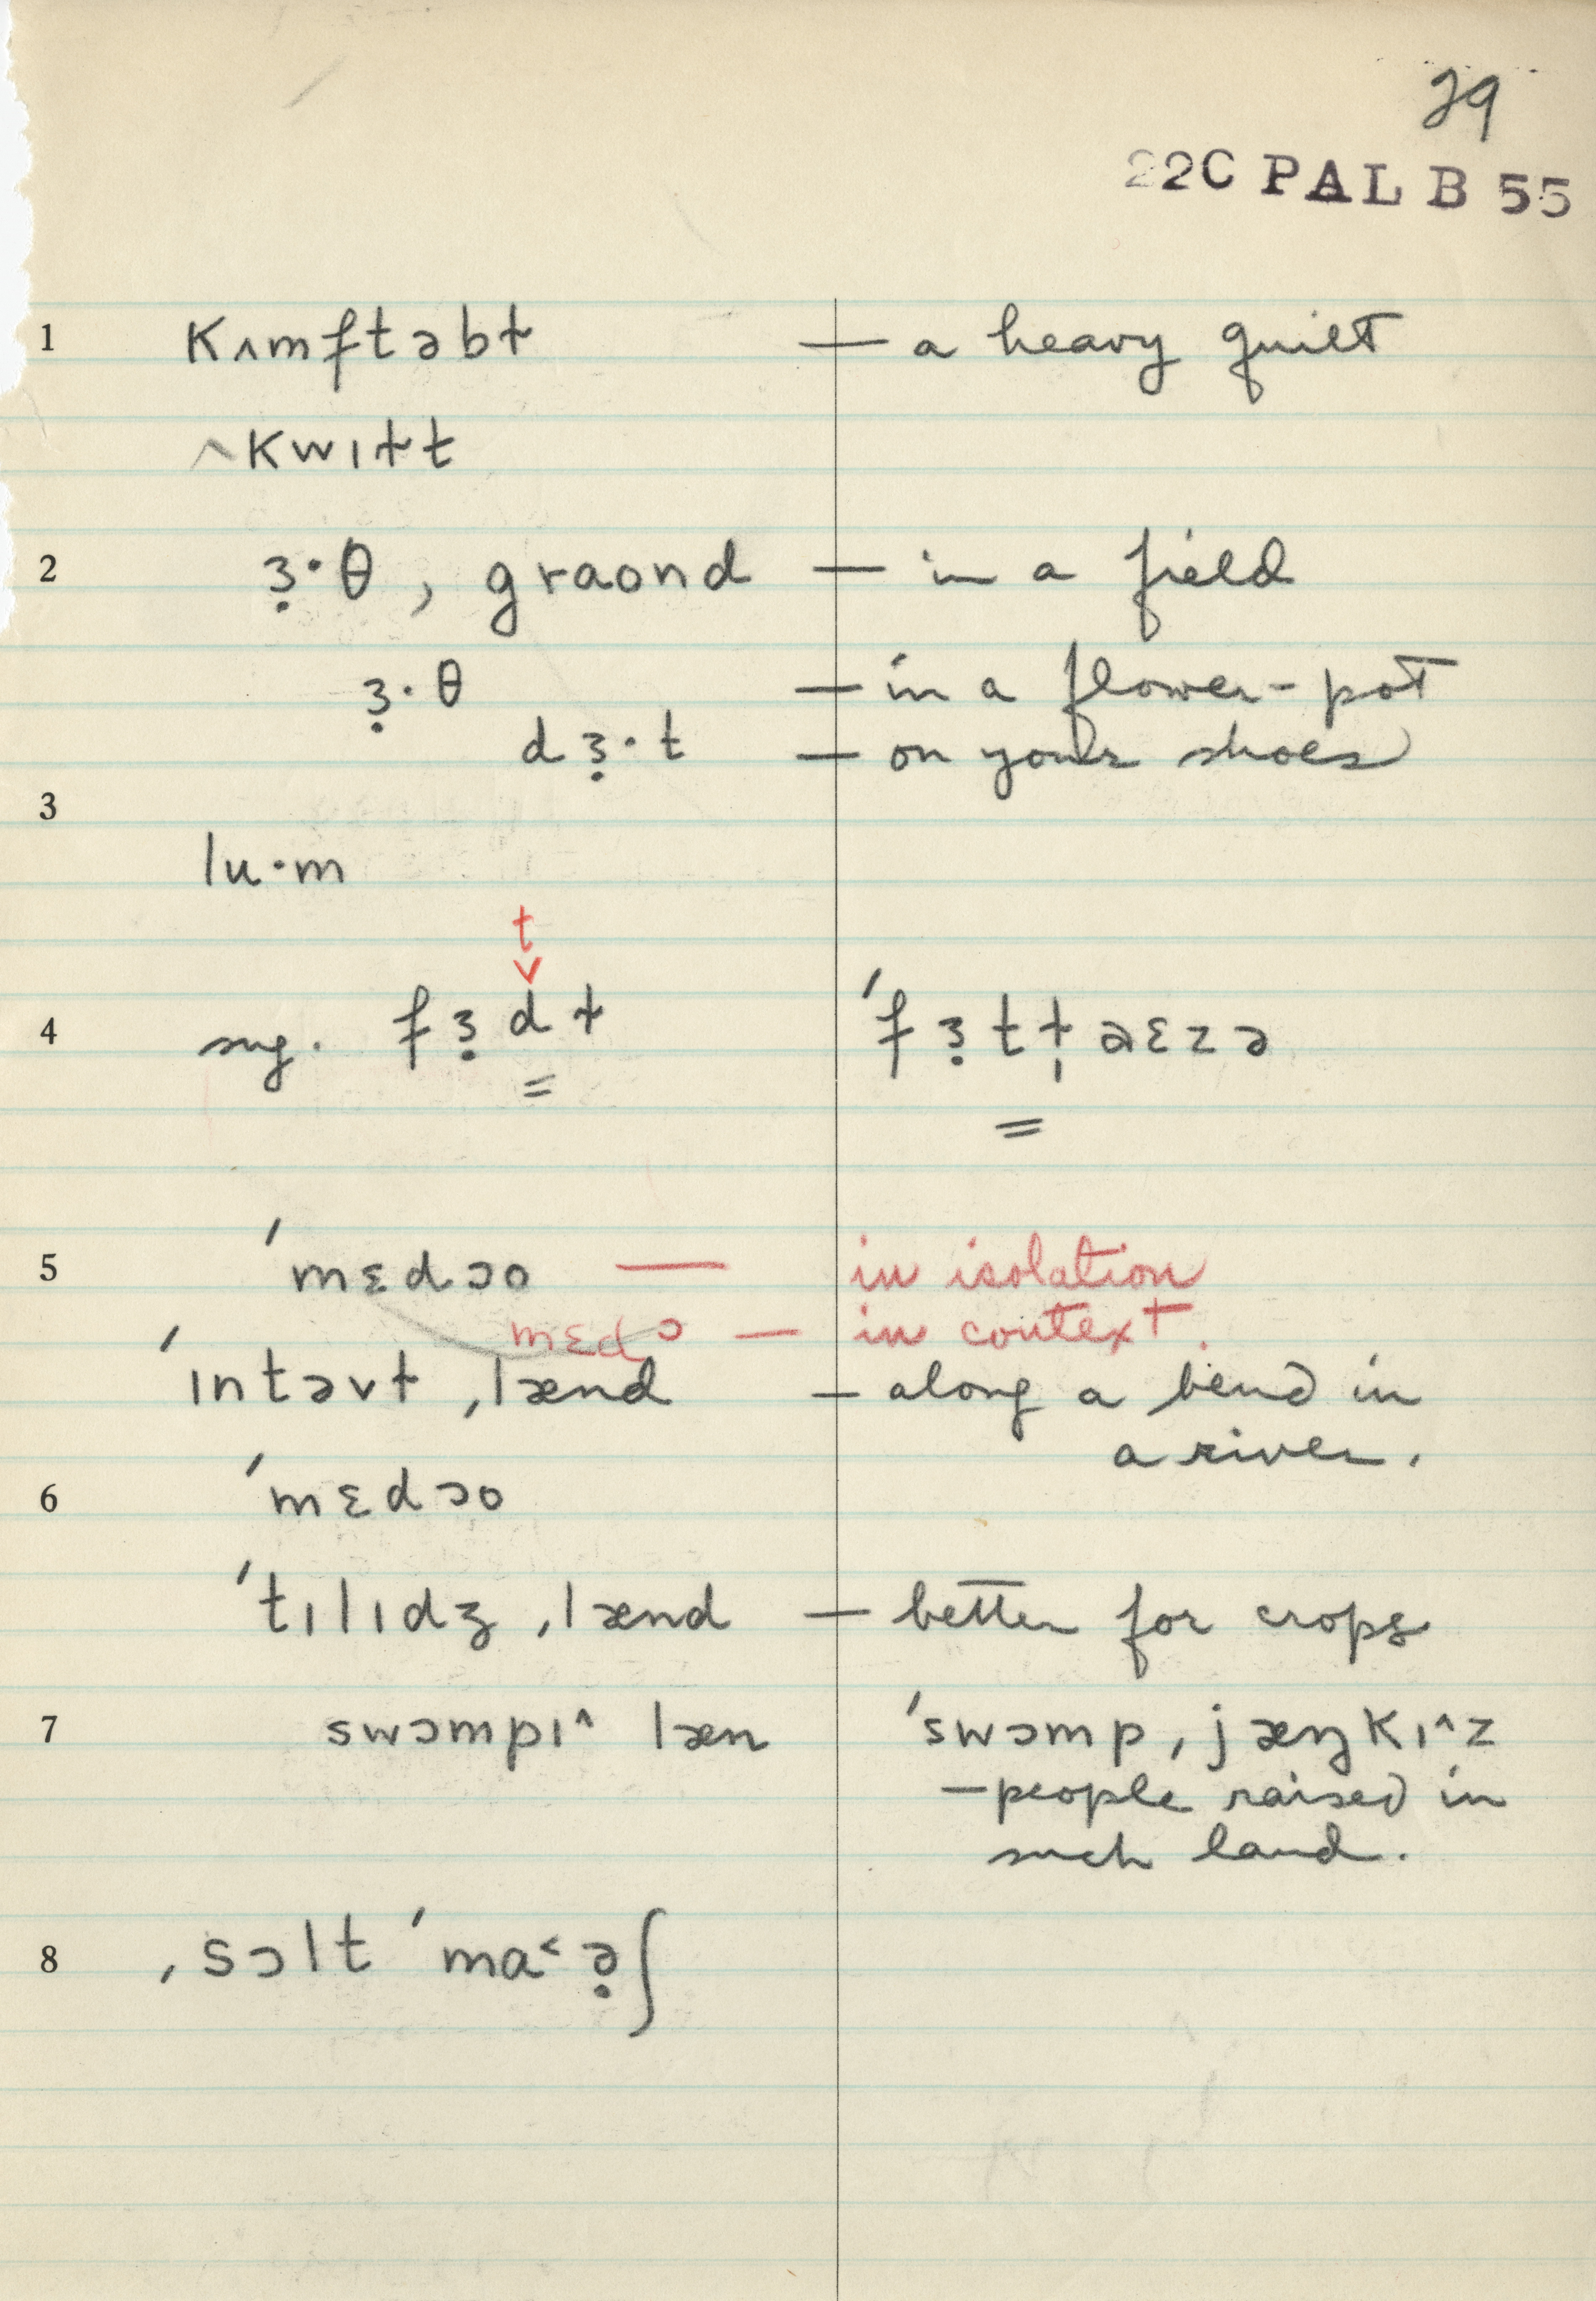 29
22C PAL B 55
1 kʌmftəbɫ — a heavy quilt
^kwɪɫt
2 ɜ̣·θ, graond — in a field
ɜ̣·θ — in a flower-pot
dɜ̣·t — on your shoes
3
lu·m
t
v
4 sug. fɜ̣dɫ ˈfɜ̣tɫ̩aɛzə
= =
5 ˈmɛdɔo — in isolation
mɛdɔ — in context.
ˈɪntəvɫ ˌlænd — along a bend in
a river.
6 ˈmɛdɔo
ˈtɪlɪdʒ ˌlænd — better for crops
7 swɔmpɪ^ læn ˈswɔmp ˌjæŋkɪ^z
— people raised in
such land.
8 ˌsɔlt ˈma˂ə̣ʃ